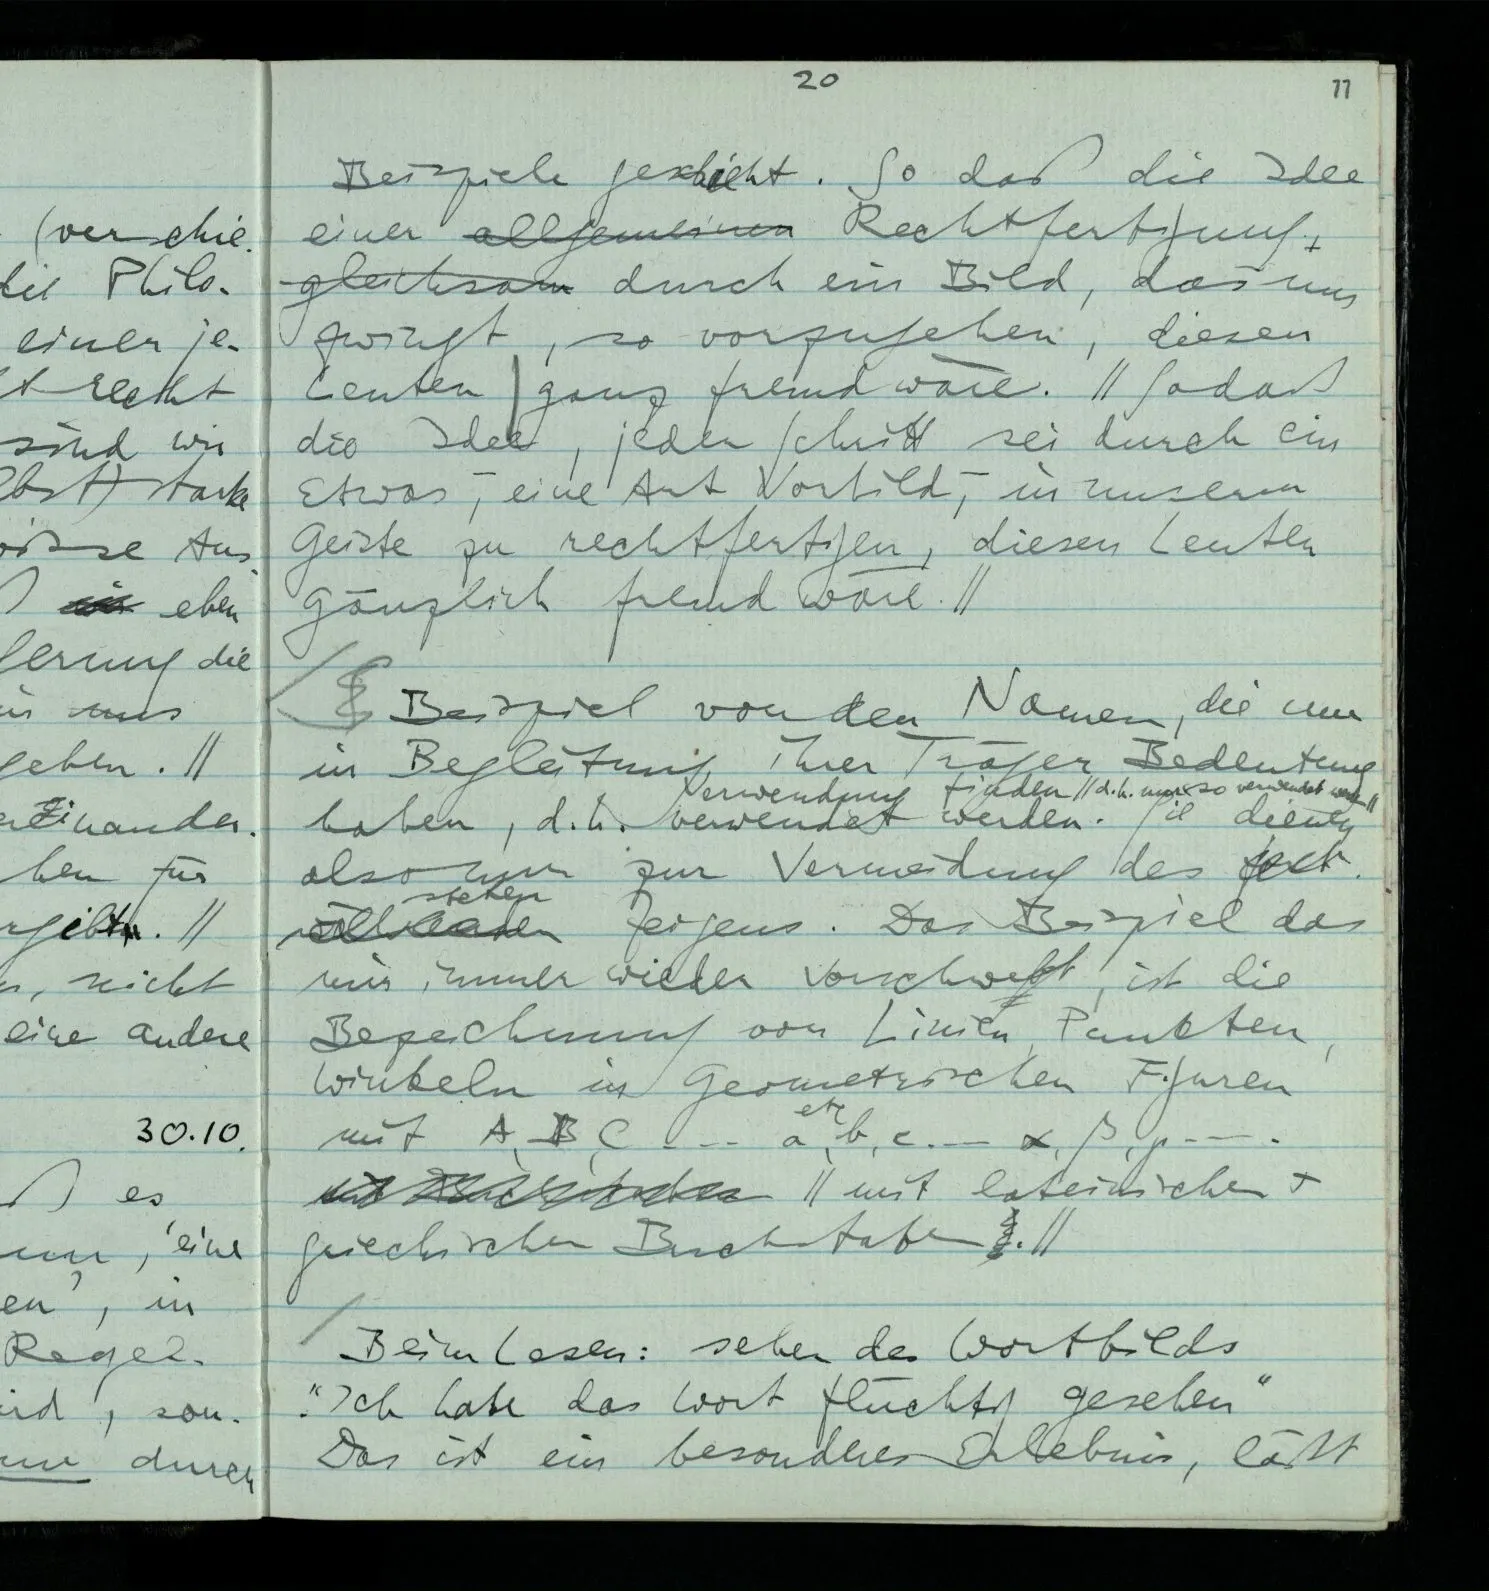 20
11
(verschie-
die Philo-
einer je-
recht
sind wir
starke
Aus-
eben
die
uns
geben. //
einander.
hen für
ergibt. //
nicht
eine andere
30.10.
es
'eine
en', in
Regel-
ird, son-
durch
Beispiele geschieht. So daß die Idee
einer allgemeinen Rechtfertigung,
gleichsam durch ein Bild, das uns
zwingt, so vorzugehen, diesen
Leuten ganz fremd wäre. // Sodaß
die Idee, jeder Schritt sei durch ein
Etwas, – eine Art Vorbild, – in unserm
Geiste zu rechtfertigen, diesen Leuten
gänzlich fremd wäre. //
Beispiel von den Namen, die nur
in Begleitung ihrer Träger Bedeutung
Verwendung finden // d.h. nur so verwendet werden //
haben, d.h. verwendet werden. Sie dienen
also nur zur Vermeidung des
stehen
Zeigens. Das Beispiel das
mir immer wieder vorschwebt, ist die
Bezeichnung von Linien, Punkten,
Winkeln in Geometrischen Figuren
etc
mit A, B, C --- a, b, c --- α, β, γ ---.
// mit lateinischen +
griechischen Buchstaben. //
Beim Lesen: sehen des Wortbilds
"Ich habe das Wort flüchtig gesehen"
Das ist ein besonderes Erlebnis, läßt